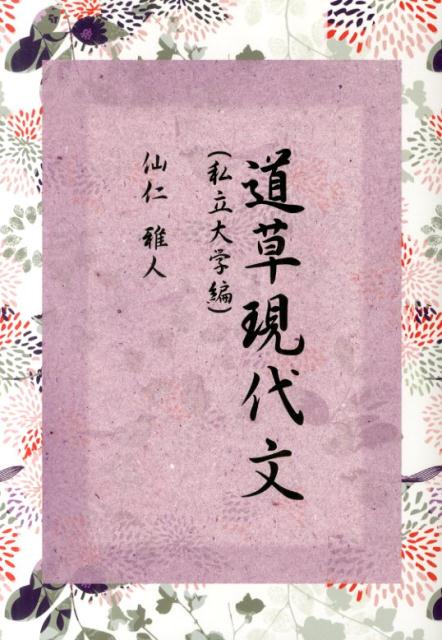 道草現代文
(私立大学編)
仙仁 雅人